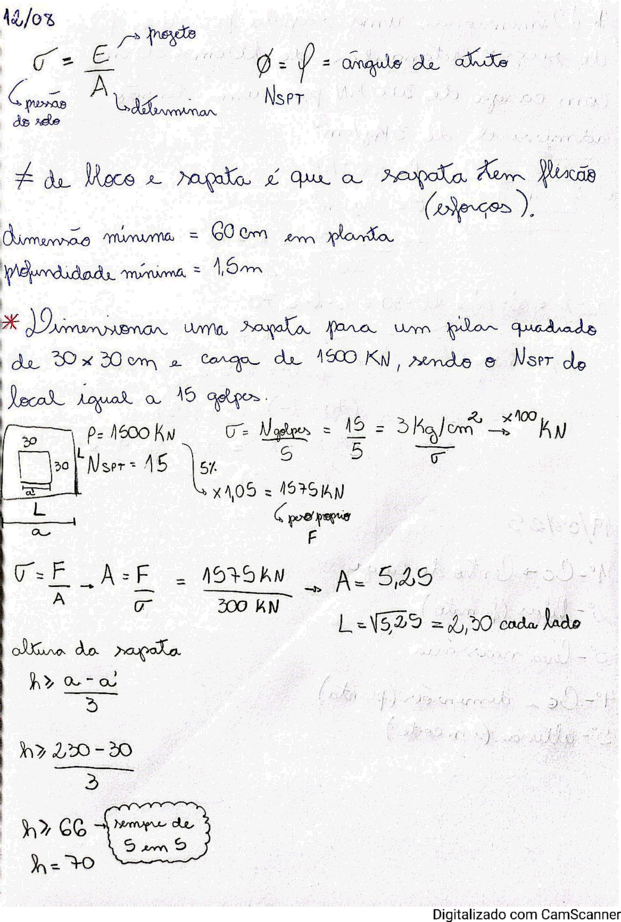 12/08
σ = E/A → projeto
↳ pressão do solo
↳ determinar
Ø = φ = ângulo de atrito
NSPT
≠ de bloco e sapata é que a sapata tem flexão
(esforços).
dimensão mínima = 60 cm em planta
profundidade mínima = 1,5m
* Dimensionar uma sapata para um pilar quadrado
de 30 x 30 cm e carga de 1500 KN, sendo o NSPT do
local igual a 15 golpes.
30
30
L
a'
L
a
P = 1500 KN
NSPT = 15
5%
↳ x 1,05 = 1575 KN
↳ peso próprio
F
σ = Ngolpes/5 = 15/5 = 3 Kg/cm² → x100 KN
σ
σ = F/A → A = F/σ = 1575 KN/300 KN → A = 5,25
L = √5,25 = 2,30 cada lado
altura da sapata
h ≥ a - a'/3
h ≥ 230 - 30/3
h ≥ 66 → sempre de
5 em 5
h = 70
Digitalizado com CamScanner